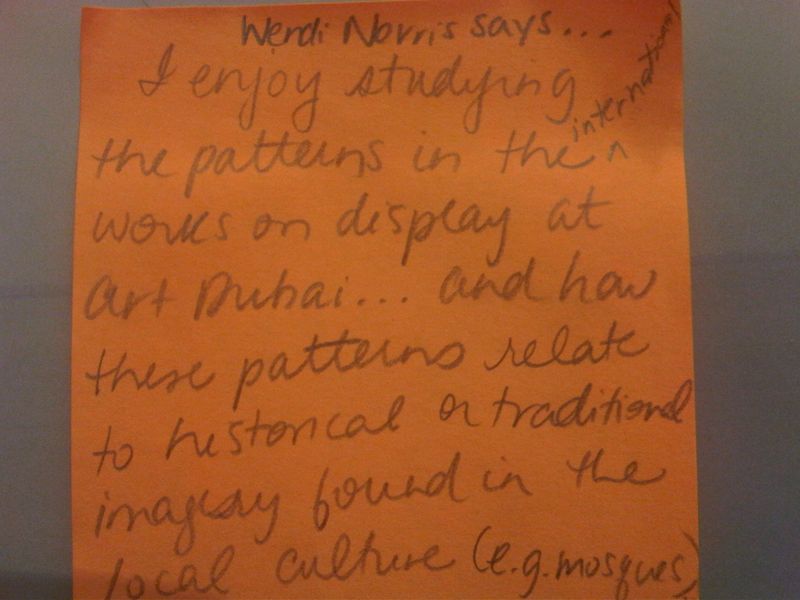 Wendi Norris says...
I enjoy studying
the patterns in the ^ international
works on display at
Art Dubai... and how
these patterns relate
to historical or traditional
imagery found in the
local culture (e.g. mosques)